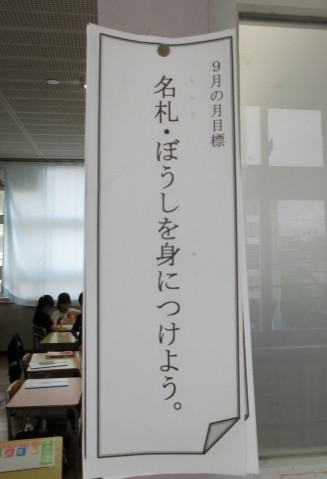 9月の月目標
名札・ぼうしを身につけよう。